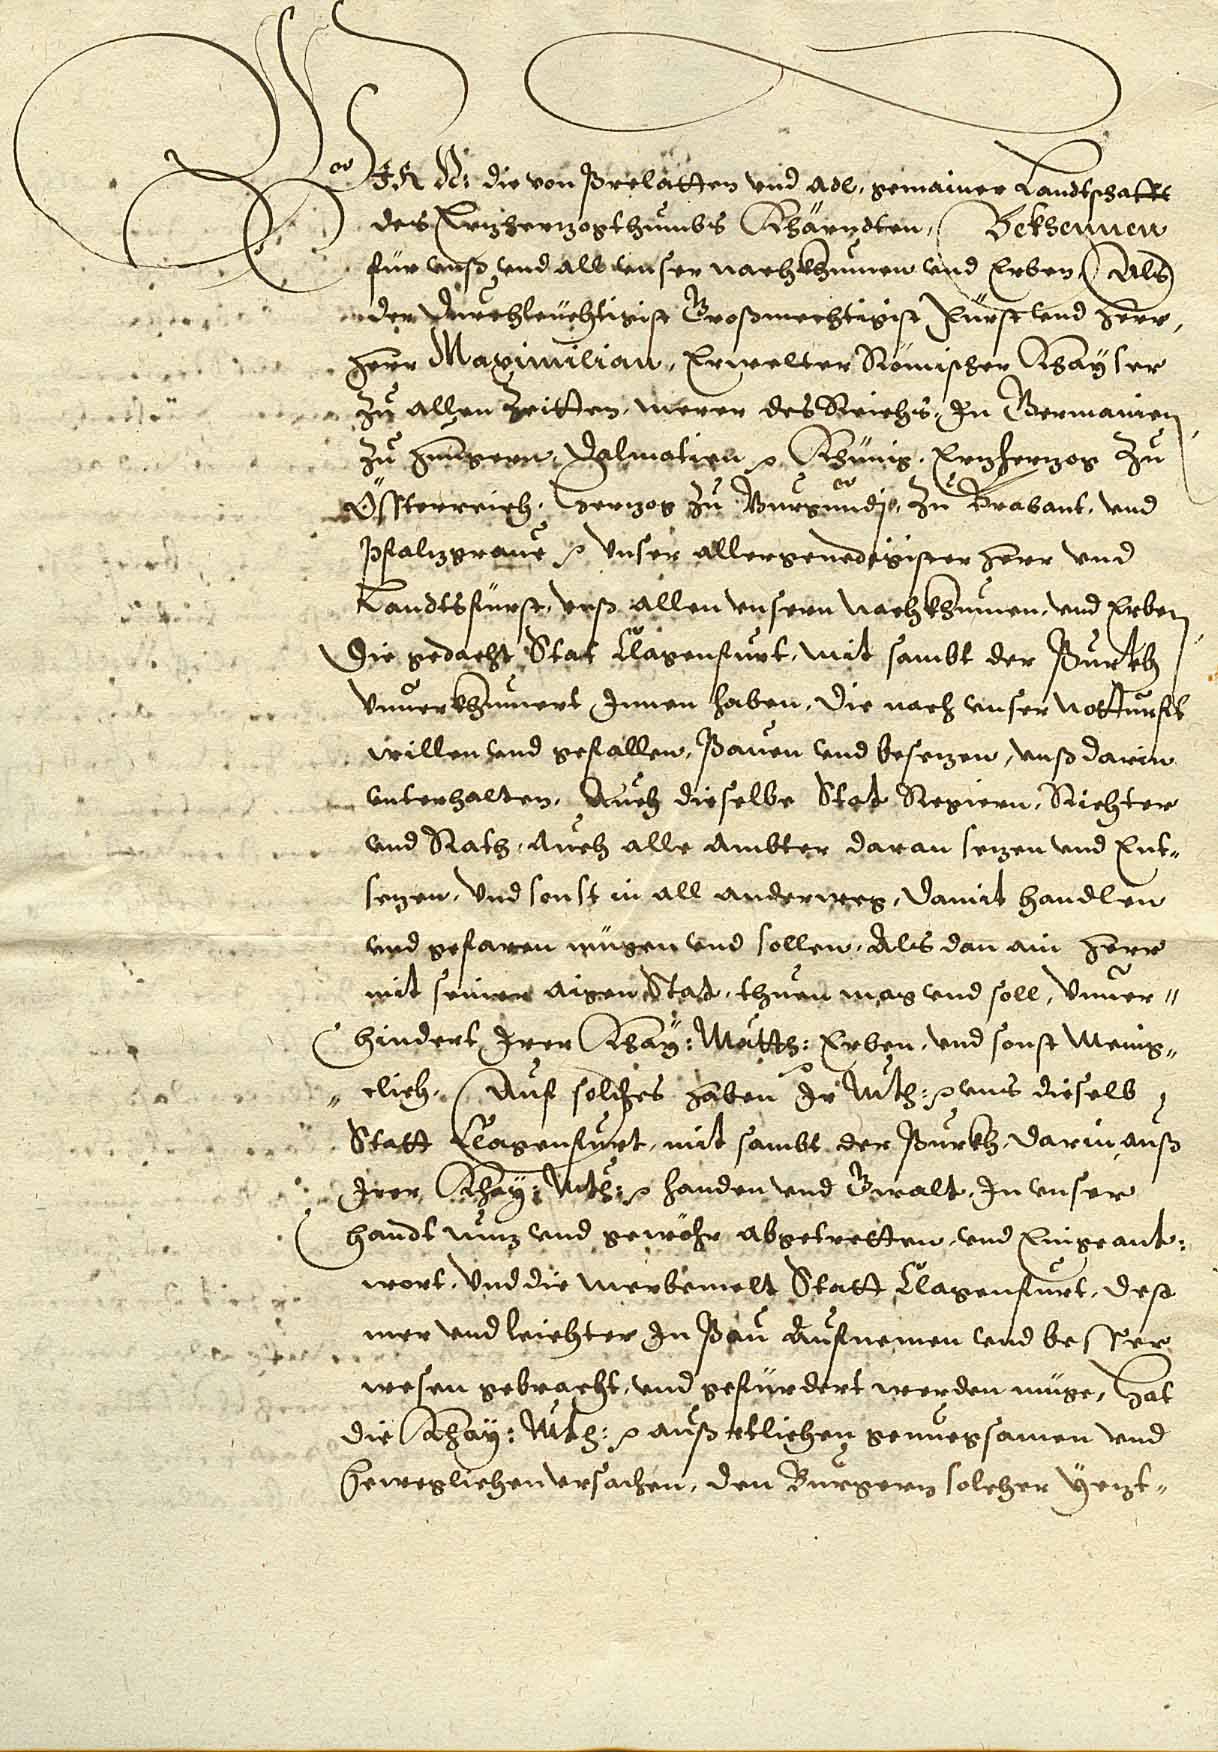 WIR N: die von Prelatten vnd Adl, gemainer Landtschafft
des Erzherzogthumbs Khärndten, Bekhennen
für vnß vnd all vnser nachkhumen vnd Erben, Als
der Durchleuchtigist Großmechtigist Fürst vnd Herr,
Herr Maximilian, Erwelter Römischer Khayser
zu allen Zeitten, merer des Reichs, In Germanien
zu Hungern, Dalmatien Khünig, Erzherzog zu
Össterreich, Herzog zu Burgundj, zu Brabant, vnd
Pfalzgraue vnser allergenedigister Herr vnd
Landtsfürst, vnß allen vnsern nachkhumen, vnd Erben
Die gedacht Stat Clagenfurt, mit sambt der Purkh
vnuerkhumert Innen haben, die nach vnser notturfft
willen vnd gefallen, Pauen vnd besezen, vnß darin
vnterhalten, Auch dieselbe Stat Regiern, Richter
vnd Rath, Auch alle Ambter daran sezen vnd Ent-
sezen, Vnd sonst in all anderweg, damit handlen
vnd gefaren mügen vnd sollen, Als dan ain Herr
mit seiner aigen Stat, thuen mag vnd soll, Vnuer-
hindert Irer Khay: Matth: Erben, vnd sonst Menig-
clich, Auf solches haben Ir Mth: vns dieselb
Statt Clagenfurt, mit sambt der Purkh, darin auß
Irer Khay: Mth: handen vnd Gwalt, In vnser
handt nuz vnd gewöhr abgetretten, vnd Eingeant-
wort, Vnd die merbemelt Statt Clagenfurt, dest
mer vnd leichter In Pau Aufnemen vnd besser
wesen gebracht, vnd gefürdert werden müge, Hat
die Khay: Mth: auß etlichen genuegsamen vnd
beweglichen vrsachen, den Burgern solcher yezt-